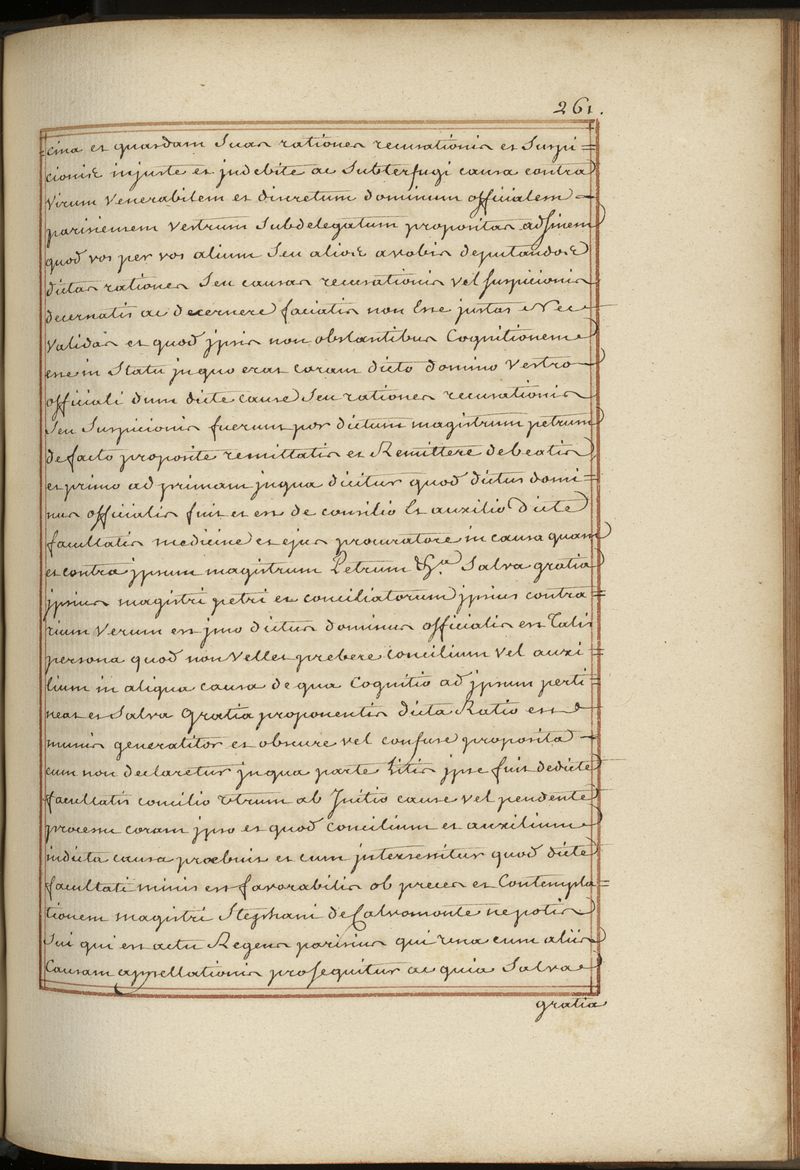 261.
cina et quasdam suas rationes recusationis et Suspi=
cionis injuste et jndebite ac Subterfugi causa contra
Virum Venerabilem et discretum dominum officialem
parisiensem Vestrum Subdelegatum propositas adfinem
quod vos per vos alium Seu alios avobis deputandos
dictas rationes Seu causas recusationis vel suspicionis
decernatis ac decernere faciatis non Esse justas Nec
Validas et quod jpsis non obstantibus Cognitionem
esse in Statu jnquo erat coram dicto domino Vestro
officiali dum dicte cause Seu rationes recusationis
Seu Suspicionis fuerunt per dictum magistrum petrum
defacto proposite remittatis et Remittere debeatis
et primo ad primam jnqua dicitur quod dictus domi=
nus officialis fuit et est de consilio Et auxilio dicte
facultatis medicine et ejus procuratore in causa quam
et contra jpsum magistrum Petrum &ª Salva gratia
jpsius magistri petri et conciliatorum jpsius contra=
rium Verum est jmo dictus dominus officialis est Talis
persona quod non Vellet prebere concilium Vel auxi=
lium in aliqua causa de qua Cognitio ad jpsum perti=
neat et Salva Gratia proponentis dicta Ratio est
minis generalitor et obscure vel confuse proposita
cum non declaretur jnqua parte Litis jpse fuit dedicte
facultatis concilio Utrum ab Jnitio cause vel pendente
processu coram jpso et quod concilium et auxilium
indicta causa proebuit et cum jnterseritur quod dicte
facultati minis est favorabilis ob preces et Contempla=
tionem magistri Stephani de Calvomonte nepotis
Sui qui est actu Regens parisius qui Una cum aliis
Causam appellationis prosequitur ac quia Salva
gratia